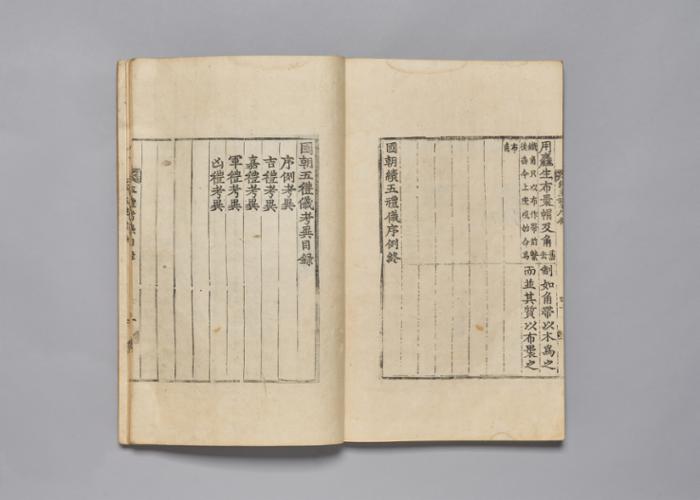 用麤生布裹帽及角 制如角帶以木爲之
角只以布作帶前繫
今上 始 爲
而並其質以布裹之
布
角
國朝續五禮儀序例終
國朝五禮儀考異目錄
序例考異
吉禮考異
嘉禮考異
軍禮考異
凶禮考異